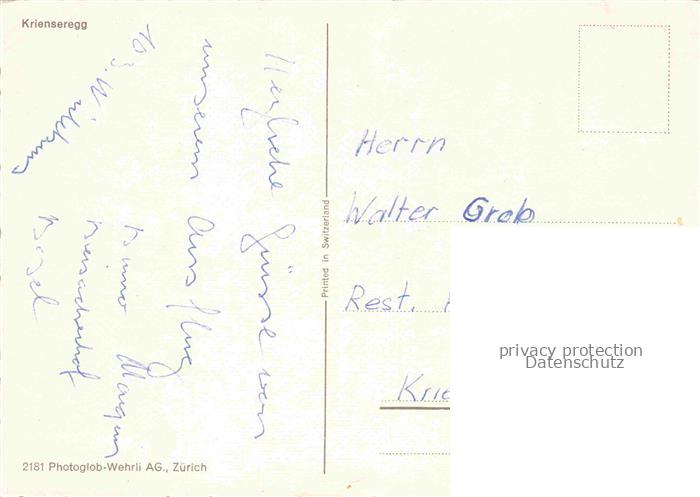 Krienseregg
Herzliche Grüsse von
unserem Ausflug
Bruno
Basel
2181 Photoglob-Wehrli AG., Zürich
Printed in Switzerland
Herrn
Walter Grob
Rest.
Krie
privacy protection
Datenschutz